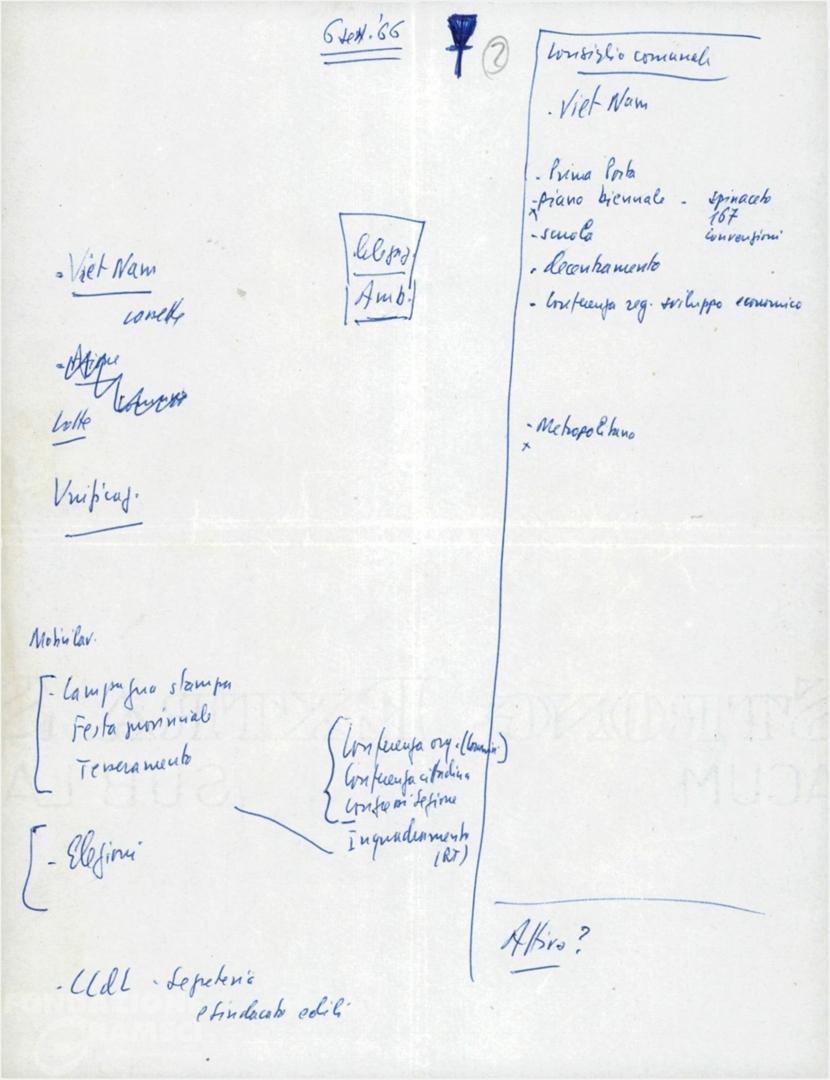 6 sett. '66
2
Consiglio comunale
. Viet Nam
- Prima Porta
- piano biennale - spinaceto
167
x
- scuola convenzioni
. decentramento
- Conferenza reg. sviluppo economico
- Metropolitana
x
Attivo?
Amb.
. Viet Nam
Lotte
Unificaz.
Mobilitaz.
- Campagna stampa
Festa provinciale
Tesseramento
- Elezioni
Conferenza org. (Comunisti)
Conferenza cittadina
Inquadramento
(RT)
. CCdL - Segreteria
e Sindacato edili